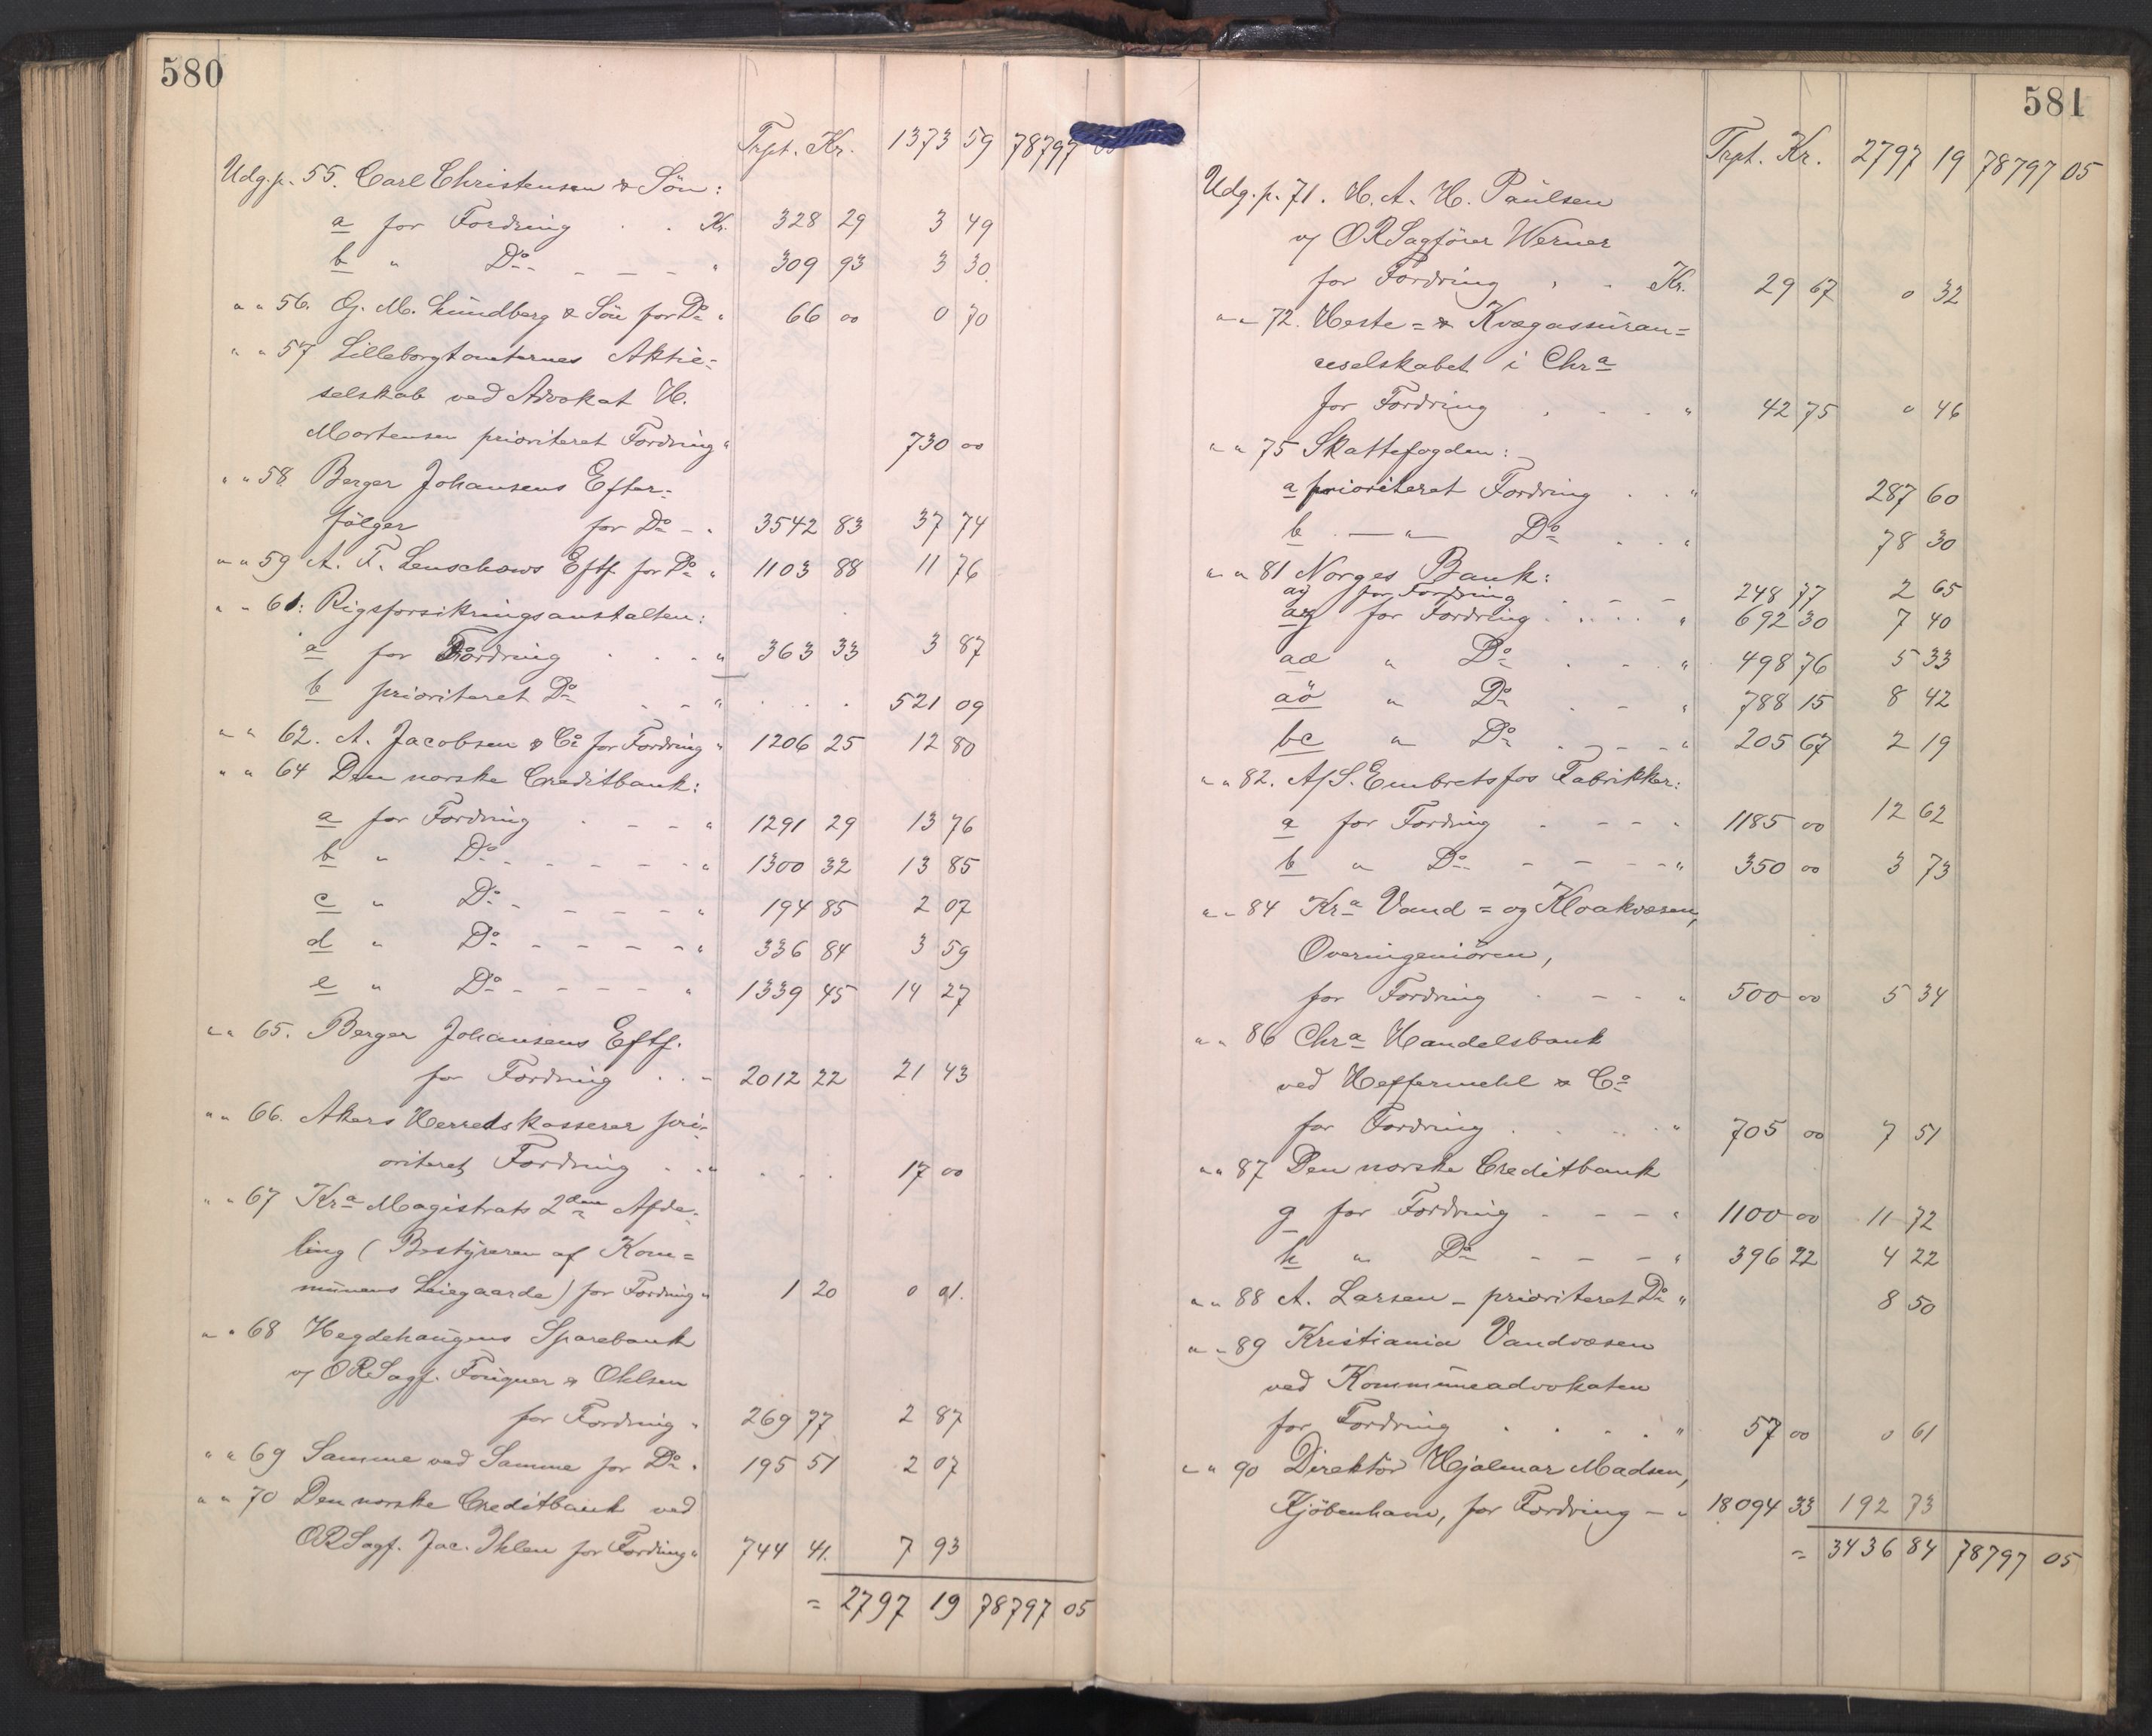 580
Trpt. Kr. 1373 59 78797
Udg. p. 55. Carl Christensen & Sön:
a for Fordring . . Kr. 328 29 3 49
b " Do - - - - " 309 93 3 30
" " 56. G. M. Lundberg & Sön for Do " 66 00 0 70
" " 57 Lilleborgtomternes Aktie-
selskab ved Advokat H.
Mortensen prioriteret Fordring " 730 00
" " 58 Berger Johansens Efter-
følger for Do - " 3542 83 37 74
" " 59 A. F. Lenschows Eftf. for Do " 1103 88 11 76
" " 61: Rigsforsikringsanstalten:
a for Fordring . . . " 363 33 3 87
b prioriteret Do - - " . . . 521 09
" " 62. A. Jacobsen & Co for Fordring " 1206 25 12 80
" " 64 Den norske Creditbank:
a for Fordring . - - " 1291 29 13 76
b " Do - - - - - " 1300 32 13 85
c " Do - - - - " 194 85 2 07
d " Do - - - - " 336 84 3 59
e " Do - - - - " 1339 45 14 27
" " 65. Berger Johansens Eftf.
for Fordring . . - 2012 22 21 43
" " 66. Akers Herredskasserer pri-
oriteret Fordring . . " . . . 17 00
" " 67 Kra Magistrats 2den Afde-
ling (Bestyreren af Kom=
munens Leiegaarde) for Fordring " 1 20 0 01.
" " 68 Hegdehaugens Sparebank
v/ ORSagf. Fougner & Ohlsen
for Fordring " 269 77 2 87
" " 69 Samme ved Samme for Do " 195 51 2 07
" " 70 Den norske Creditbank ved
ORSagf. Jac. Ihlen for Fordring " 744 41. 7 93
= 2797 19 78797 05
581
Trpt. Kr. 2797 19 78797 05
Udg. p. 71. H. A. H. Paulsen
v/ ORSagförer Werner
for Fordring . . Kr. 29 67 0 32
" " 72. Heste= & Kvægassuran=
ceselskabet i Chra
for Fordring . . . " 42 75 0 46
" " 75 Skattefogden:
a prioriteret Fordring . . " 287 60
b . — " — Do . . " 78 30
" " 81 Norges Bank:
ay for Fordring . - - 248 77 2 65
az for Fordring . . . . " 692 30 7 40
aæ " Do . - . " 498 76 5 33
aö " Do . - " 788 15 8 42
bc " Do . - - " 205 67 2 19
" " 82. A/S. Embretsfos Fabrikker:
a for Fordring . - - - " 1185 00 12 62
b " Do - - - - " 350 00 3 73
" " 84 Kra Vand= og Kloakvæsen,
Overingeniören,
for Fordring . - - " 500 00 5 34
" " 86 Chra Handelsbank
ved Heffermehl & Co
for Fordring . . . . " 705 00 7 51
" " 87 Den norske Creditbank
g for Fordring . - - " 1100 00 11 72
h " Do - - - " 396 22 4 22
" " 88 A. Larsen - prioriteret Do " 8 50
" " 89 Kristiania Vandvæsen
ved Kommuneadvokaten
for Fordring . . . . " 57 00 0 61
" " 90 Direktör Hjalmar Madsen,
Kjöbenhavn, for Fordring - " 18094 33 192 73
= 3436 84 78797 05